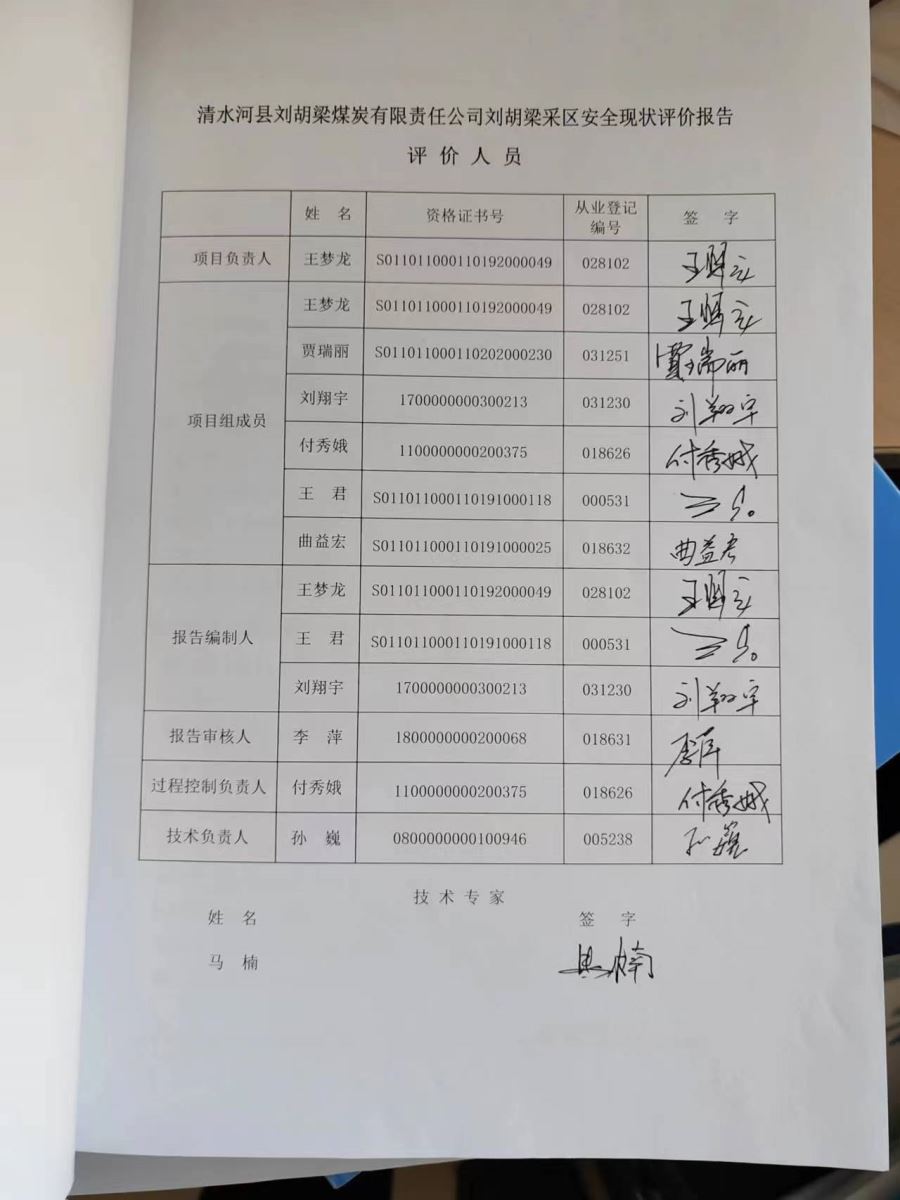 清水河县刘胡梁煤炭有限责任公司刘胡梁采区安全现状评价报告
评价人员
姓 名 资格证书号 从业登记编号 签 字
项目负责人 王梦龙 S011011000110192000049 028102 王梦龙
项目组成员 王梦龙 S011011000110192000049 028102 王梦龙
贾瑞丽 S011011000110202000230 031251 贾瑞丽
刘翔宇 1700000000300213 031230 刘翔宇
付秀娥 1100000000200375 018626 付秀娥
王 君 S011011000110191000118 000531 王君
曲益宏 S011011000110191000025 018632 曲益宏
报告编制人 王梦龙 S011011000110192000049 028102 王梦龙
王 君 S011011000110191000118 000531 王君
刘翔宇 1700000000300213 031230 刘翔宇
报告审核人 李 萍 1800000000200068 018631 李萍
过程控制负责人 付秀娥 1100000000200375 018626 付秀娥
技术负责人 孙 巍 0800000000100946 005238 孙巍
技术专家
姓 名 签 字
马 楠 马楠